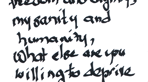 freedom and dignity,
my sanity and
humanity,
what else are you
willing to deprive